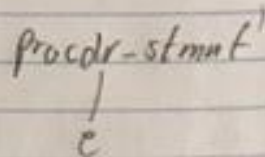 procdr-stmnt'
e